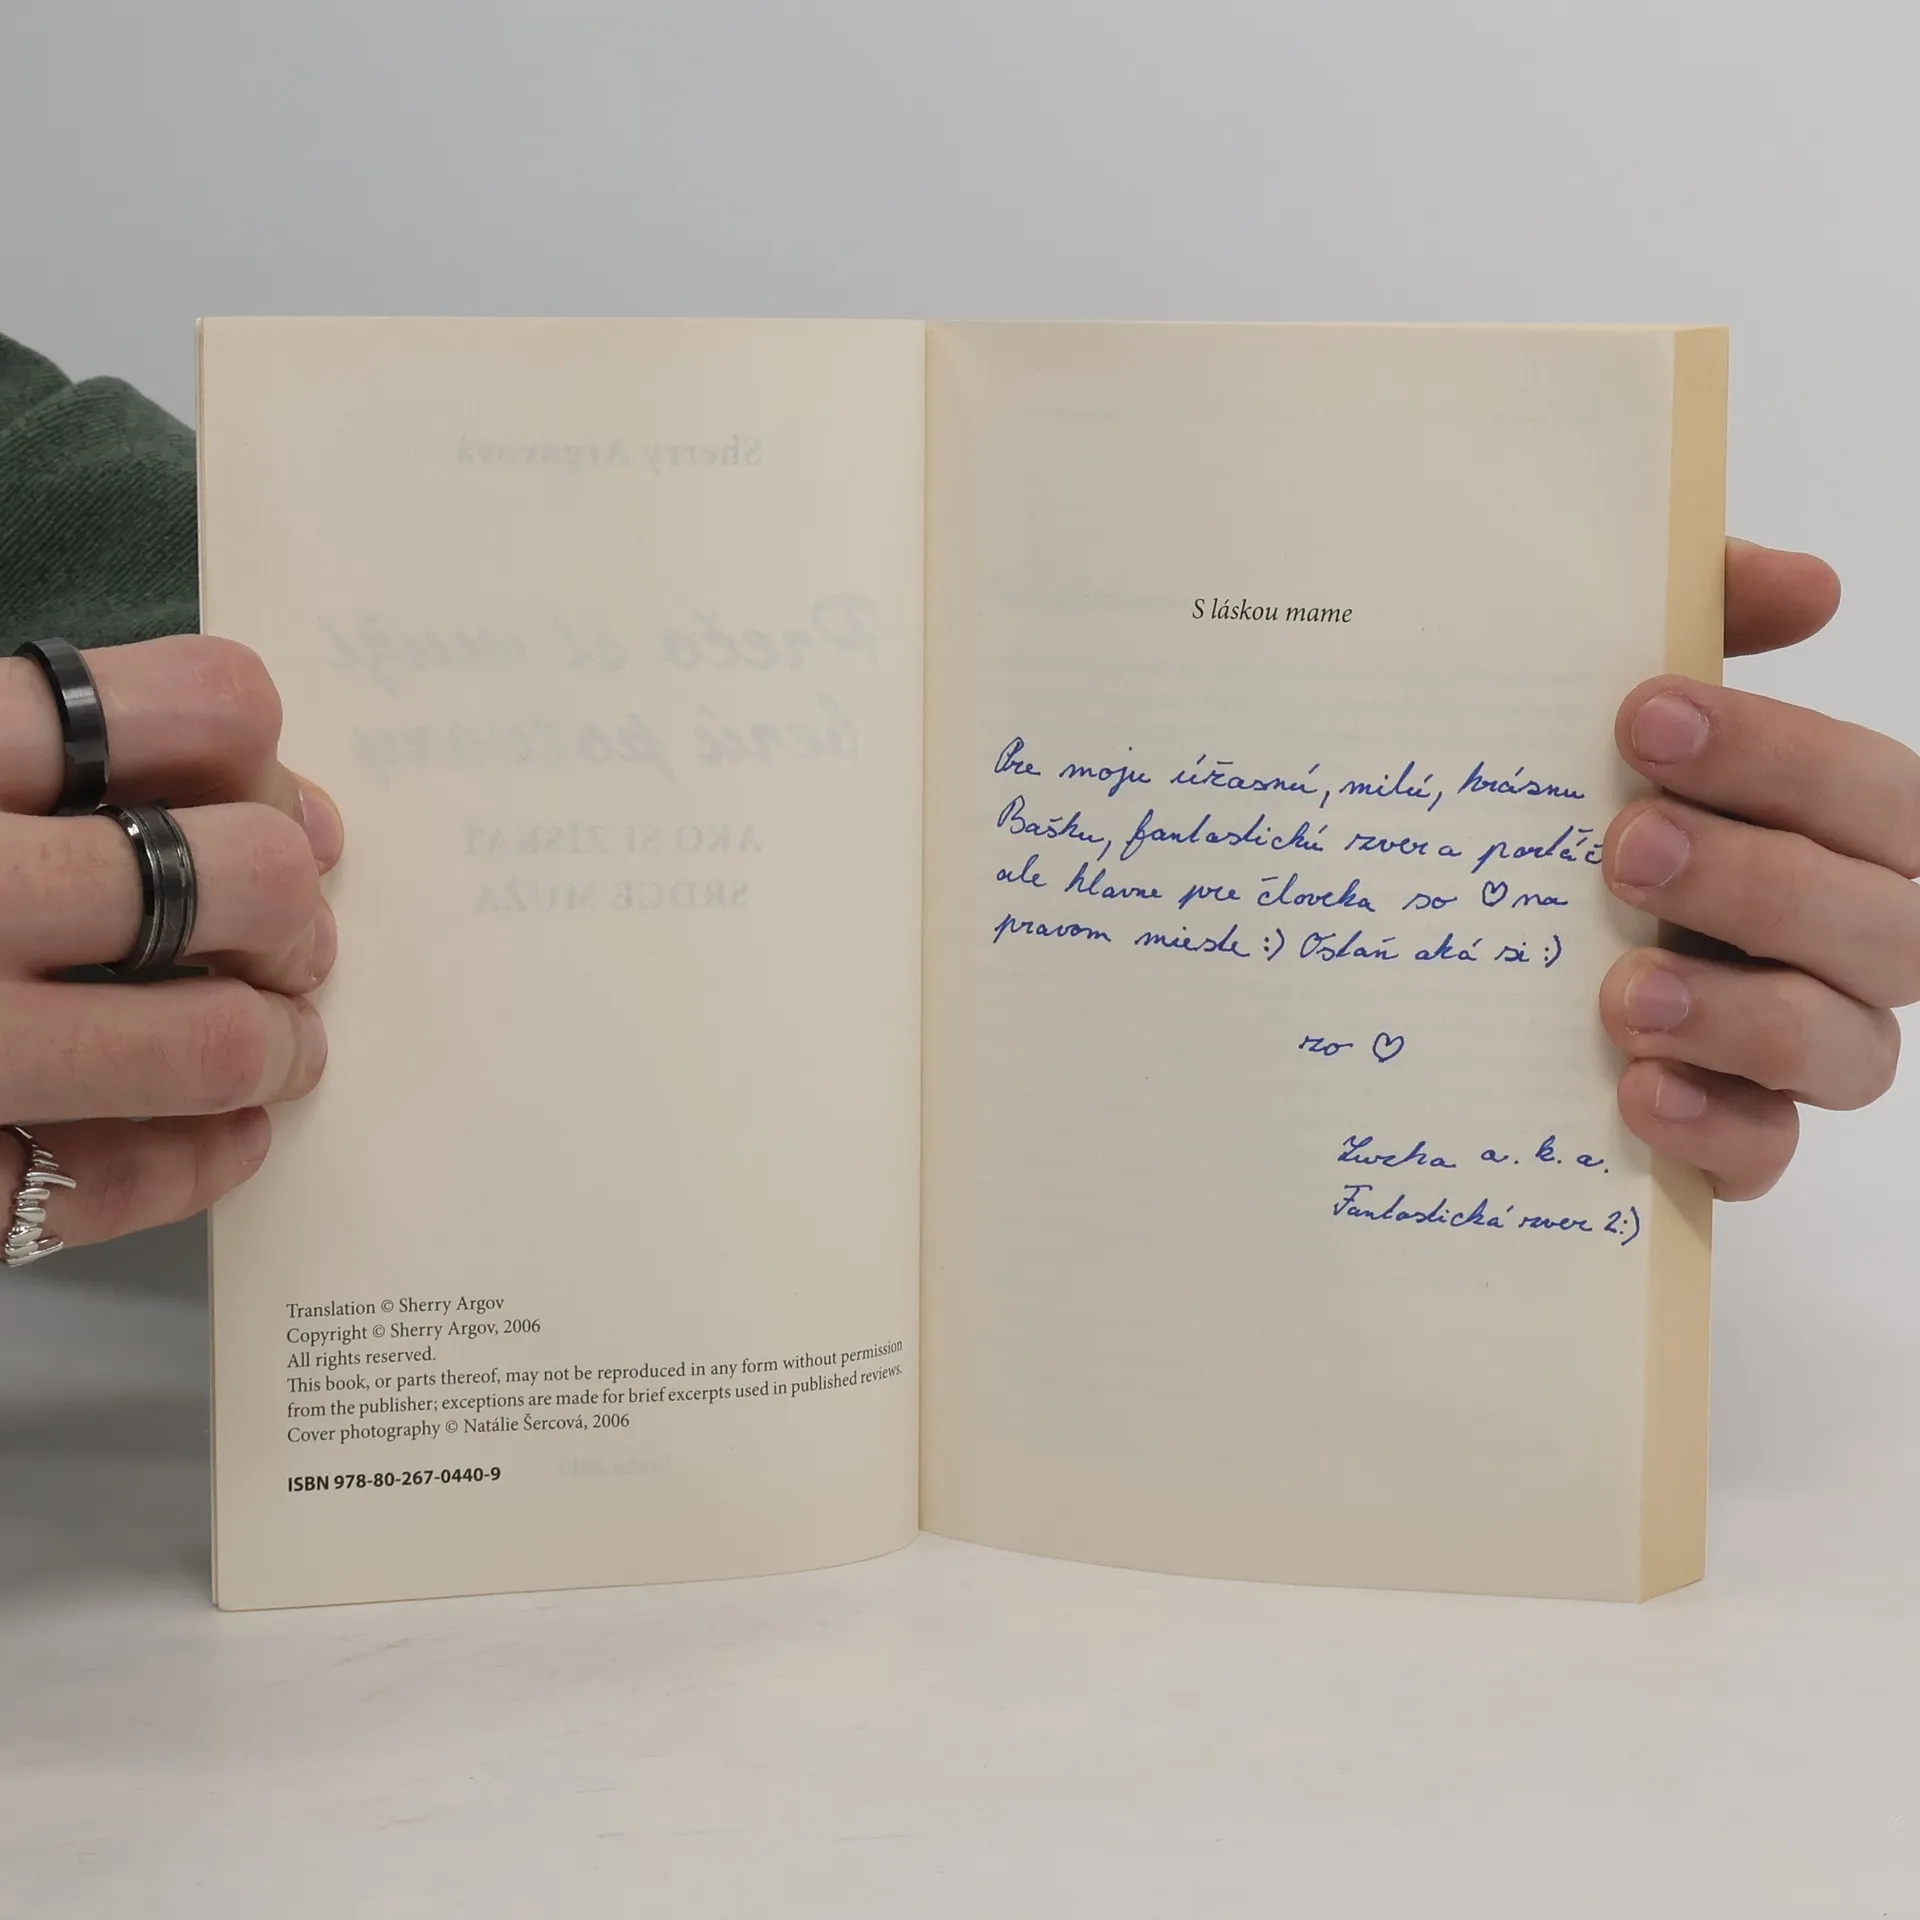 Sherry Argovová
Prečo si muži
berú potvory
AKO SI ZÍSKAŤ
SRDCE MUŽA
Translation © Sherry Argov
Copyright © Sherry Argov, 2006
All rights reserved.
This book, or parts thereof, may not be reproduced in any form without permission
from the publisher; exceptions are made for brief excerpts used in published reviews.
Cover photography © Natálie Šercová, 2006
ISBN 978-80-267-0440-9
S láskou mame
Pre moju úžasnú, milú, krásnu
Bašku, fantastickú zver a
ale hlavne pre človeka so ♡ na
pravom mieste :) Ostaň aká si :)
zo ♡
a. k. a.
Fantastická zver 2:)